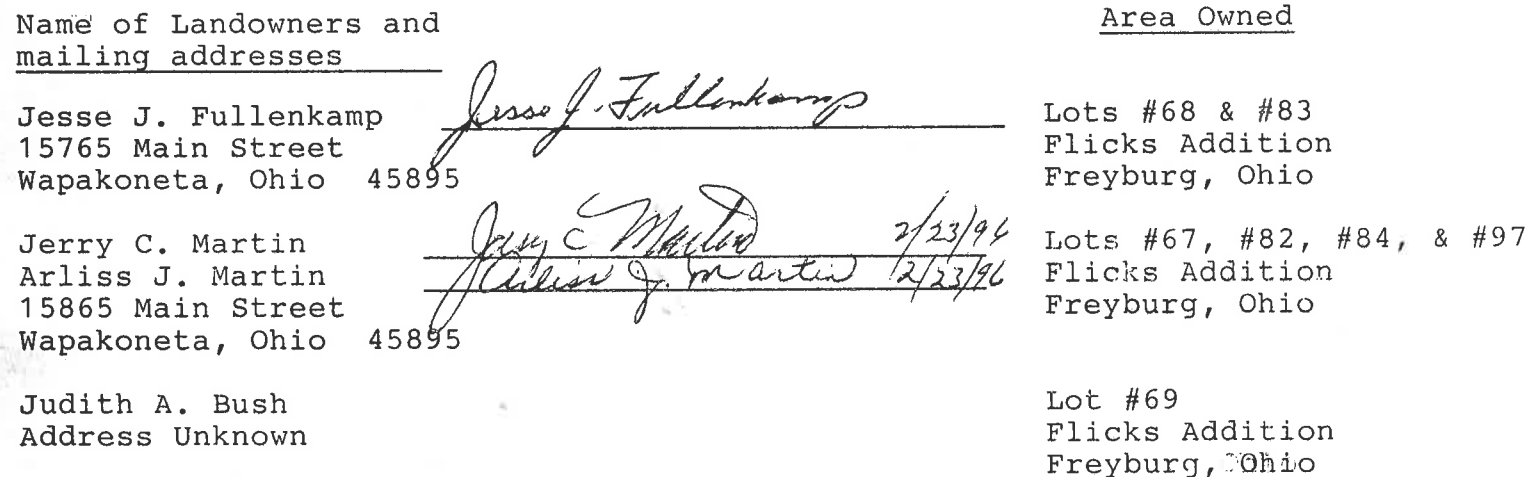 Name of Landowners and
mailing addresses
Area Owned
Jesse J. Fullenkamp
15765 Main Street
Wapakoneta, Ohio 45895
Jesse J. Fullenkamp
Lots #68 & #83
Flicks Addition
Freyburg, Ohio
Jerry C. Martin
Arliss J. Martin
15865 Main Street
Wapakoneta, Ohio 45895
Jerry C Martin 2/23/96
Arliss J. Martin 2/23/96
Lots #67, #82, #84, & #97
Flicks Addition
Freyburg, Ohio
Judith A. Bush
Address Unknown
Lot #69
Flicks Addition
Freyburg, Ohio